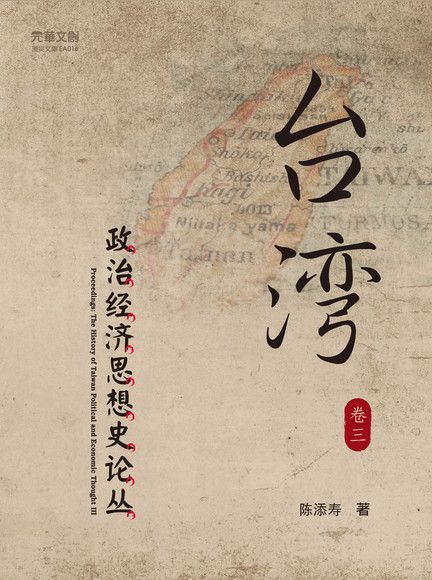 元華文創
頂尖文庫 EA018
台湾
政治经济思想史论丛
Proceedings: The History of Taiwan Political and Economic Thought III
卷三
陈添寿 著
TAIWAN
Niitaka yama